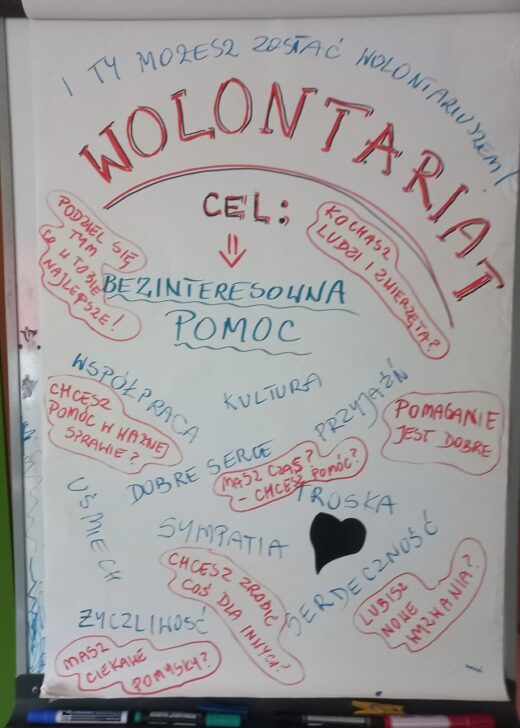 I TY MOŻESZ ZOSTAĆ WOLONTARIUSZEM!
WOLONTARIAT
CEL:
PODZIEL SIĘ
TYM
CO W TOBIE
NAJLEPSZE!
KOCHASZ
LUDZI I ZWIERZĘTA?
BEZINTERESOWNA
POMOC
WSPÓŁPRACA
KULTURA
PRZYJAŹŃ
CHCESZ
POMÓC W WAŻNEJ
SPRAWIE?
POMAGANIE
JEST DOBRE
DOBRE SERCE
MASZ CZAS?
- CHCESZ POMÓC?
TROSKA
UŚMIECH
SYMPATIA
SERDECZNOŚĆ
CHCESZ ZROBIĆ
COŚ DLA INNYCH?
LUBISZ
NOWE
WYZWANIA?
ŻYCZLIWOŚĆ
MASZ
CIEKAWE
POMYSŁY?